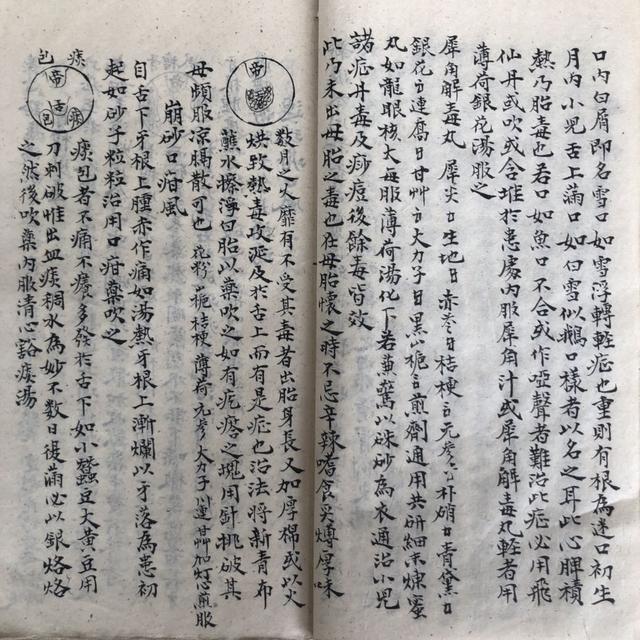 口內白屑即名雪口如雪浮轉輕症也重則有根為迷口初生
月內小兒舌上滿口如白雪似鵝口樣者以名之耳此心脾積
熱乃胎毒也若口如魚口不合或作啞聲者難治此症必用飛
仙丹或吹或含堆於患處內服犀角汁或犀角解毒丸輕者用
薄荷銀花湯服之
犀角解毒丸 犀尖 生地 赤参 桔梗 元参 朴硝 青黛
銀花 連喬 甘艸 大力子 黑山梔 煎劑通用共研細末煉蜜
丸如龍眼核大每服薄荷湯化下若驚以硃砂為衣通治小兒
諸症丹毒及痧痘後餘毒皆效
此乃未出母胎之毒也在母胎懷之時不忌辛辣嗜食炙煿厚味
數月之火靡有不受其毒者出胎身長又加厚棉或以火
烘致熱毒攻延及於舌上而有是症也治法將新青布
蘸水擦淨口胎以藥吹之如有疙瘩之塊用針挑破其
母頻服凉膈散可也 花粉 山梔 桔梗 薄荷 元参 大力子 川連 甘艸 加灯心煎服
崩砂口疳風
自舌下牙根上腫赤作痛如湯熱牙根上漸爛以牙落為患初
起如砂子粒粒治用口疳藥吹之
痰包
帝
舌
包
痰
痰包者不痛不癢多發於舌下如小蠶豆大黃豆用
刀刺破惟出血痰稠水為妙不数日後滿必以銀烙烙
之然後吹藥內服清心豁痰湯